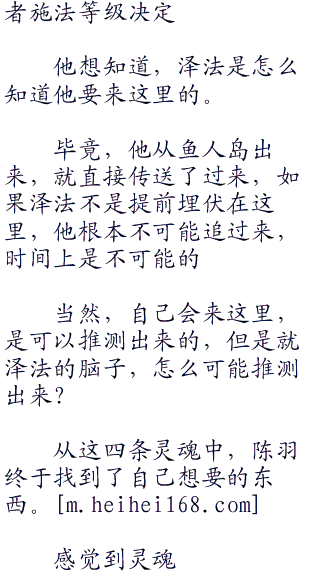 者施法等级决定
他想知道，泽法是怎么
知道他要来这里的。
毕竟，他从鱼人岛出
来，就直接传送了过来，如
果泽法不是提前埋伏在这
里，他根本不可能追过来，
时间上是不可能的
当然，自己会来这里，
是可以推测出来的，但是就
泽法的脑子，怎么可能推测
出来？
从这四条灵魂中，陈羽
终于找到了自己想要的东
西。[m.heihei168.com]
感觉到灵魂